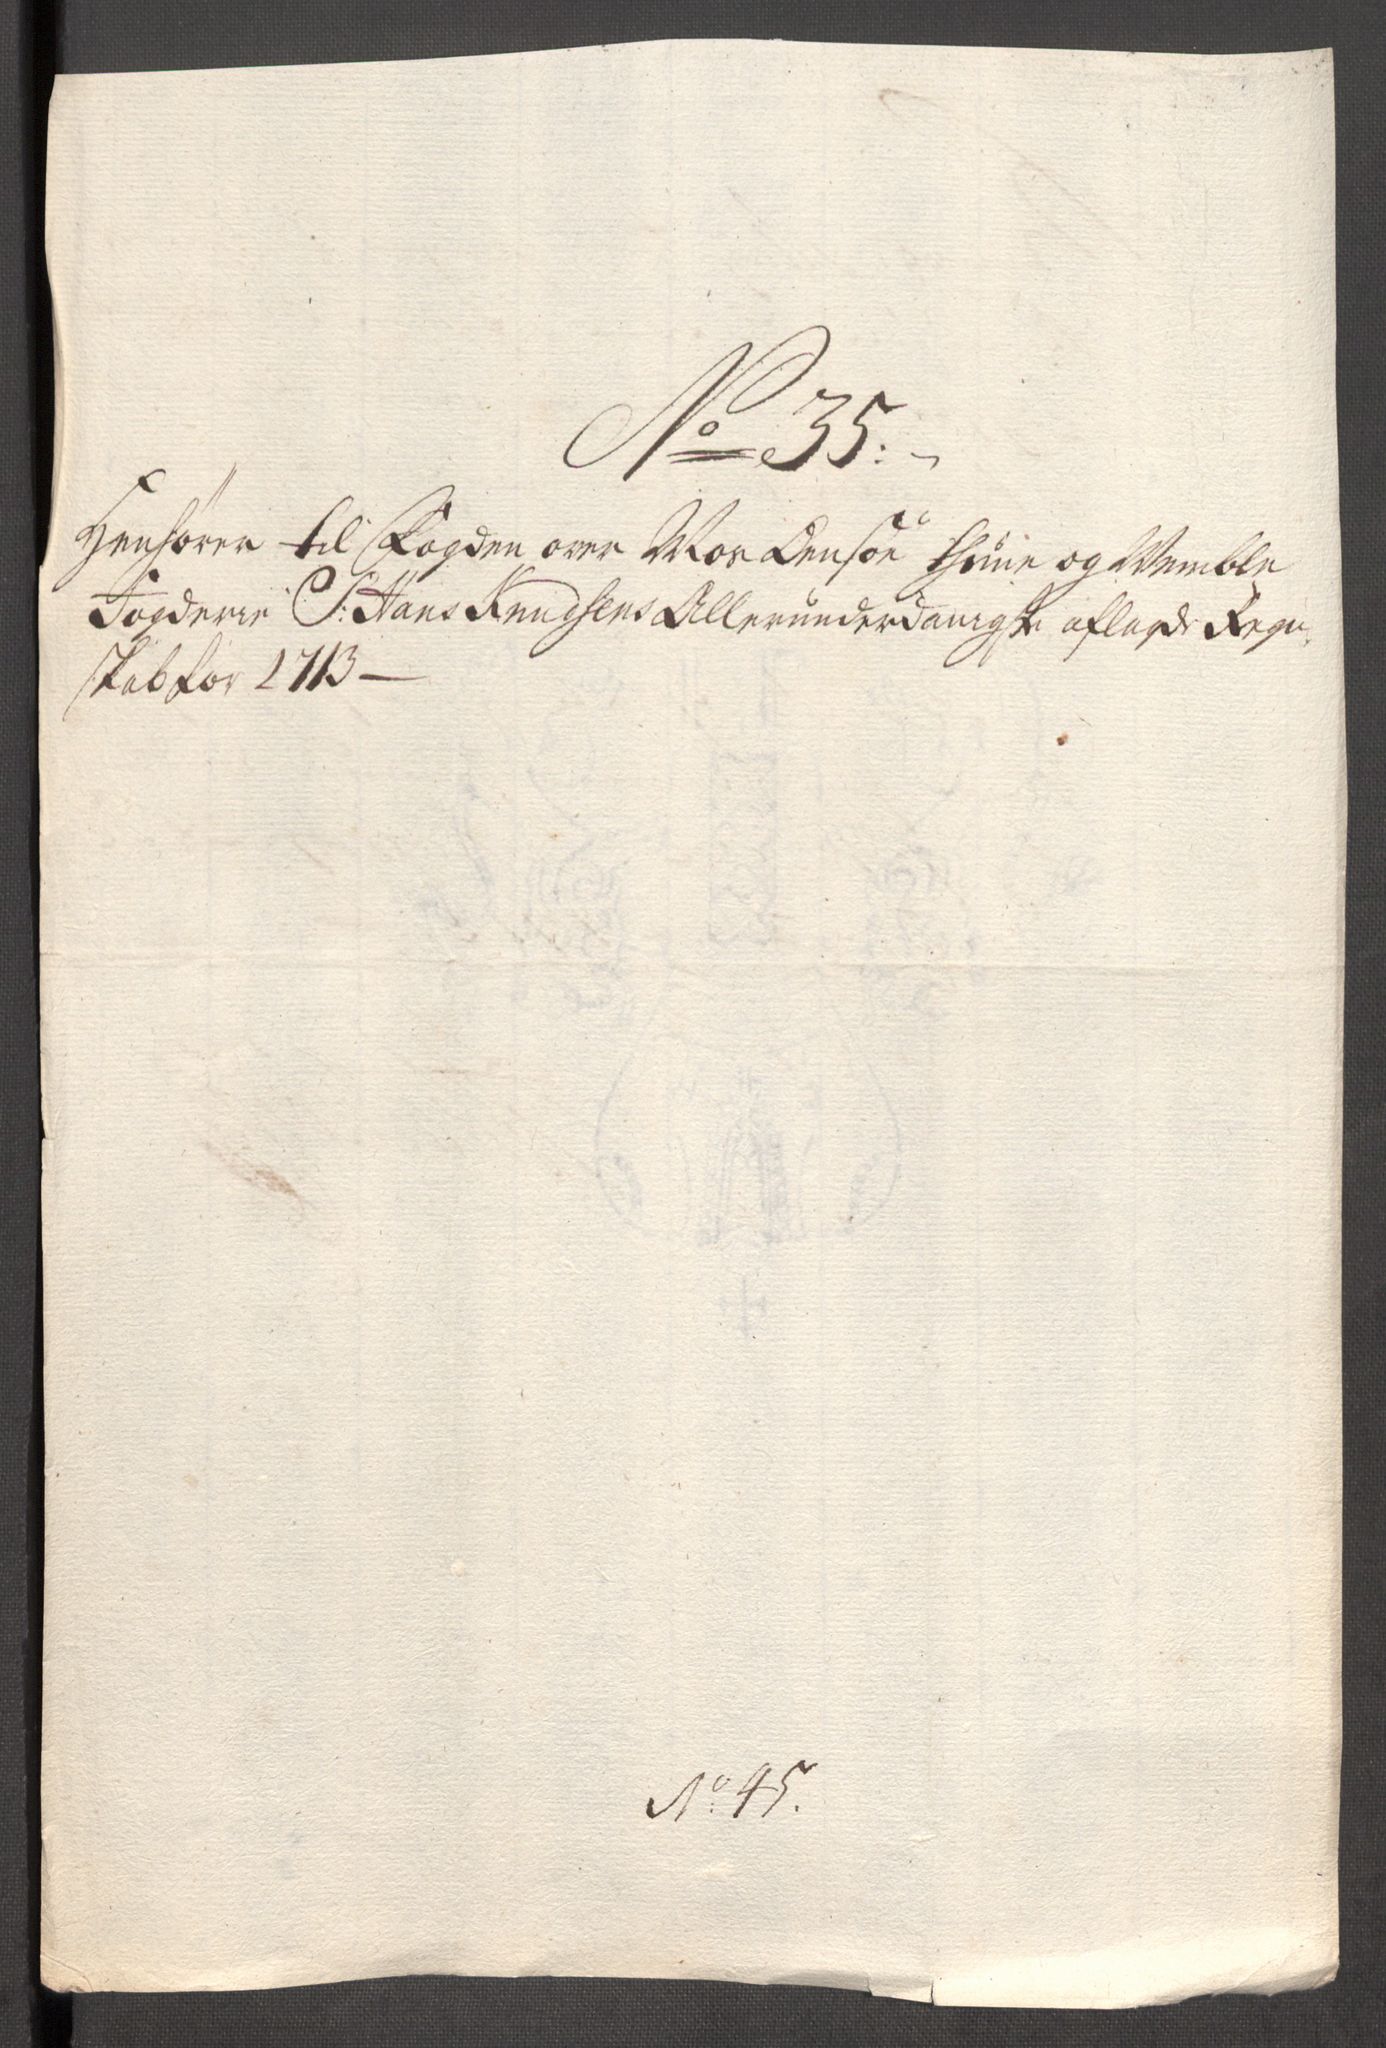 No 35:
Henhörer til Fogden over Moss Tensöe Thune og Wemble
Fogderie S: Hans Knudsens Allerunderdanigste aflagde Regn,
skab for 1713 —
No. 45.